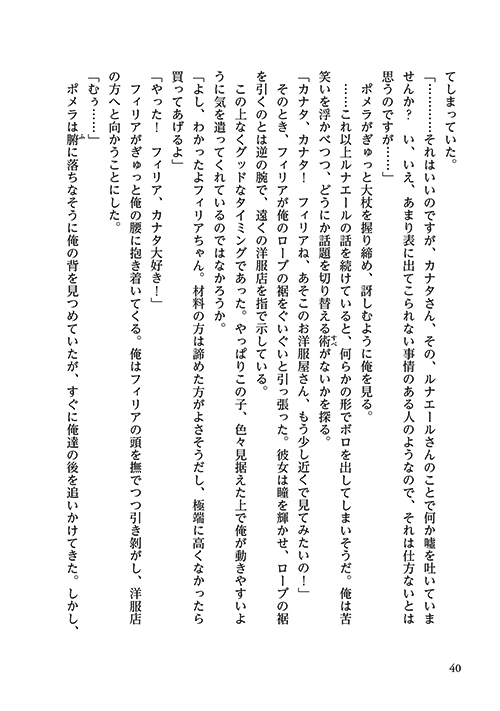 てしまっていた。
「…………それはいいのですが、カナタさん、その、ルナエールさんのことで何か嘘を吐いていま
せんか？　い、いえ、あまり表に出てこられない事情のある人のようなので、それは仕方ないとは
思うのですが……」
　ポメラがぎゅっと大杖を握り締め、訝しむように俺を見る。
　……これ以上ルナエールの話を続けていると、何らかの形でボロを出してしまいそうだ。俺は苦
笑いを浮かべつつ、どうにか話題を切り替える術がないかを探る。
「カナタ、カナタ！　フィリアね、あそこのお洋服屋さん、もう少し近くで見てみたいの！」
　そのとき、フィリアが俺のローブの裾をぐいぐいと引っ張った。彼女は瞳を輝かせ、ローブの裾
を引くのとは逆の腕で、遠くの洋服店を指で示している。
　この上なくグッドなタイミングであった。やっぱりこの子、色々見据えた上で俺が動きやすいよ
うに気を遣ってくれているのではなかろうか。
「よし、わかったよフィリアちゃん。材料の方は諦めた方がよさそうだし、極端に高くなかったら
買ってあげるよ」
「やった！　フィリア、カナタ大好き！」
　フィリアがぎゅっと俺の腰に抱き着いてくる。俺はフィリアの頭を撫でつつ引き剝がし、洋服店
の方へと向かうことにした。
「むぅ……」
　ポメラは腑に落ちなそうに俺の背を見つめていたが、すぐに俺達の後を追いかけてきた。しかし、
40